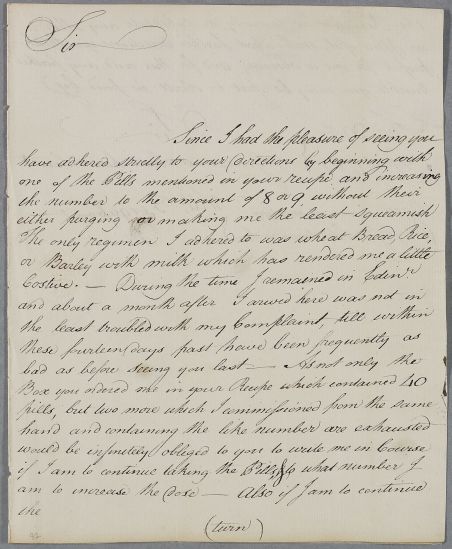 Sir
Since I had the pleasure of seeing you
have adhered strictly to your directions by beginning with
one of the Pills mentioned in your recipe and increasing
the number to the amount of 8 or 9 without their
either purging or making me the least squamish
The only regimen I adhered to was wheat Bread, Rice,
or Barley with milk which has rendered me a little
Costive. — During the time I remained in Edinr
and about a month after I arived here was not in
the least troubled with my Complaint, till within
these fourteen days past have been frequently as
bad as before seeing you last — As not only the
Box you ordered me in your Recipe which contained 40
pills, but two more which I commissioned from the same
hand and containing the like number are exhausted
would be infinitely obliged to you to write me in Course
if I am to continue taking the Pills, & to what number I
am to increase the dose — Also if I am to continue
the
(turn)